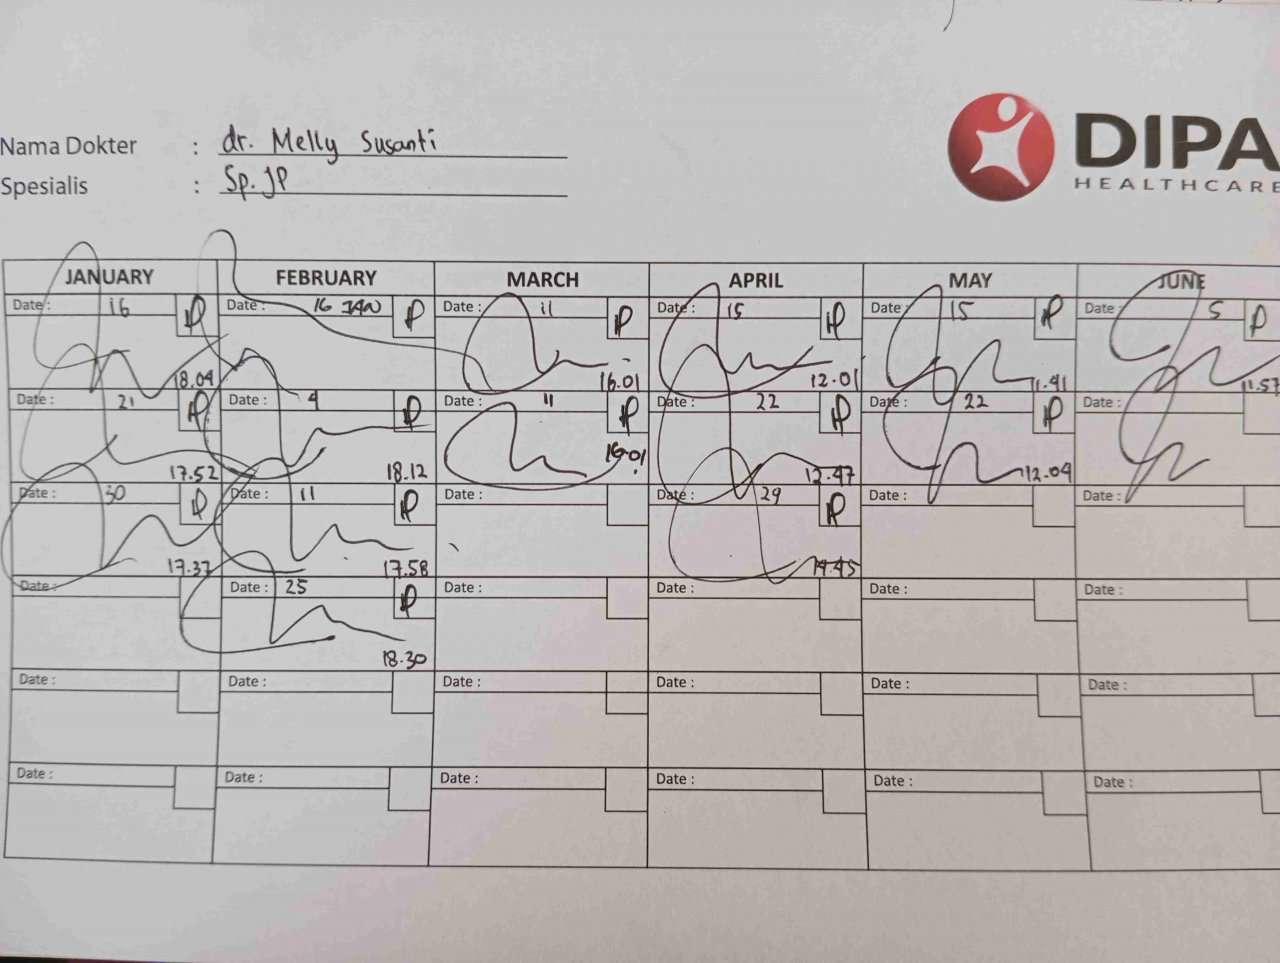 Nama Dokter : dr. Melly Susanti
Spesialis : Sp. JP
DIPA
HEALTHCARE
JANUARY FEBRUARY MARCH APRIL MAY JUNE
Date : 16 P Date : 16 JAN P Date : 11 P Date : 15 P Date : 15 P Date : 5 P
18.04 16.01 12.01 11.41 11.57
Date : 21 P Date : 4 P Date : 11 P Date : 22 P Date : 22 P Date :
17.52 18.12 16.01 12.47 12.04
Date : 30 P Date : 11 P Date : Date : 29 P Date : Date :
17.37 17.58 14.45
Date : Date : 25 P Date : Date : Date : Date :
18.30
Date : Date : Date : Date : Date : Date :
Date : Date : Date : Date : Date : Date :